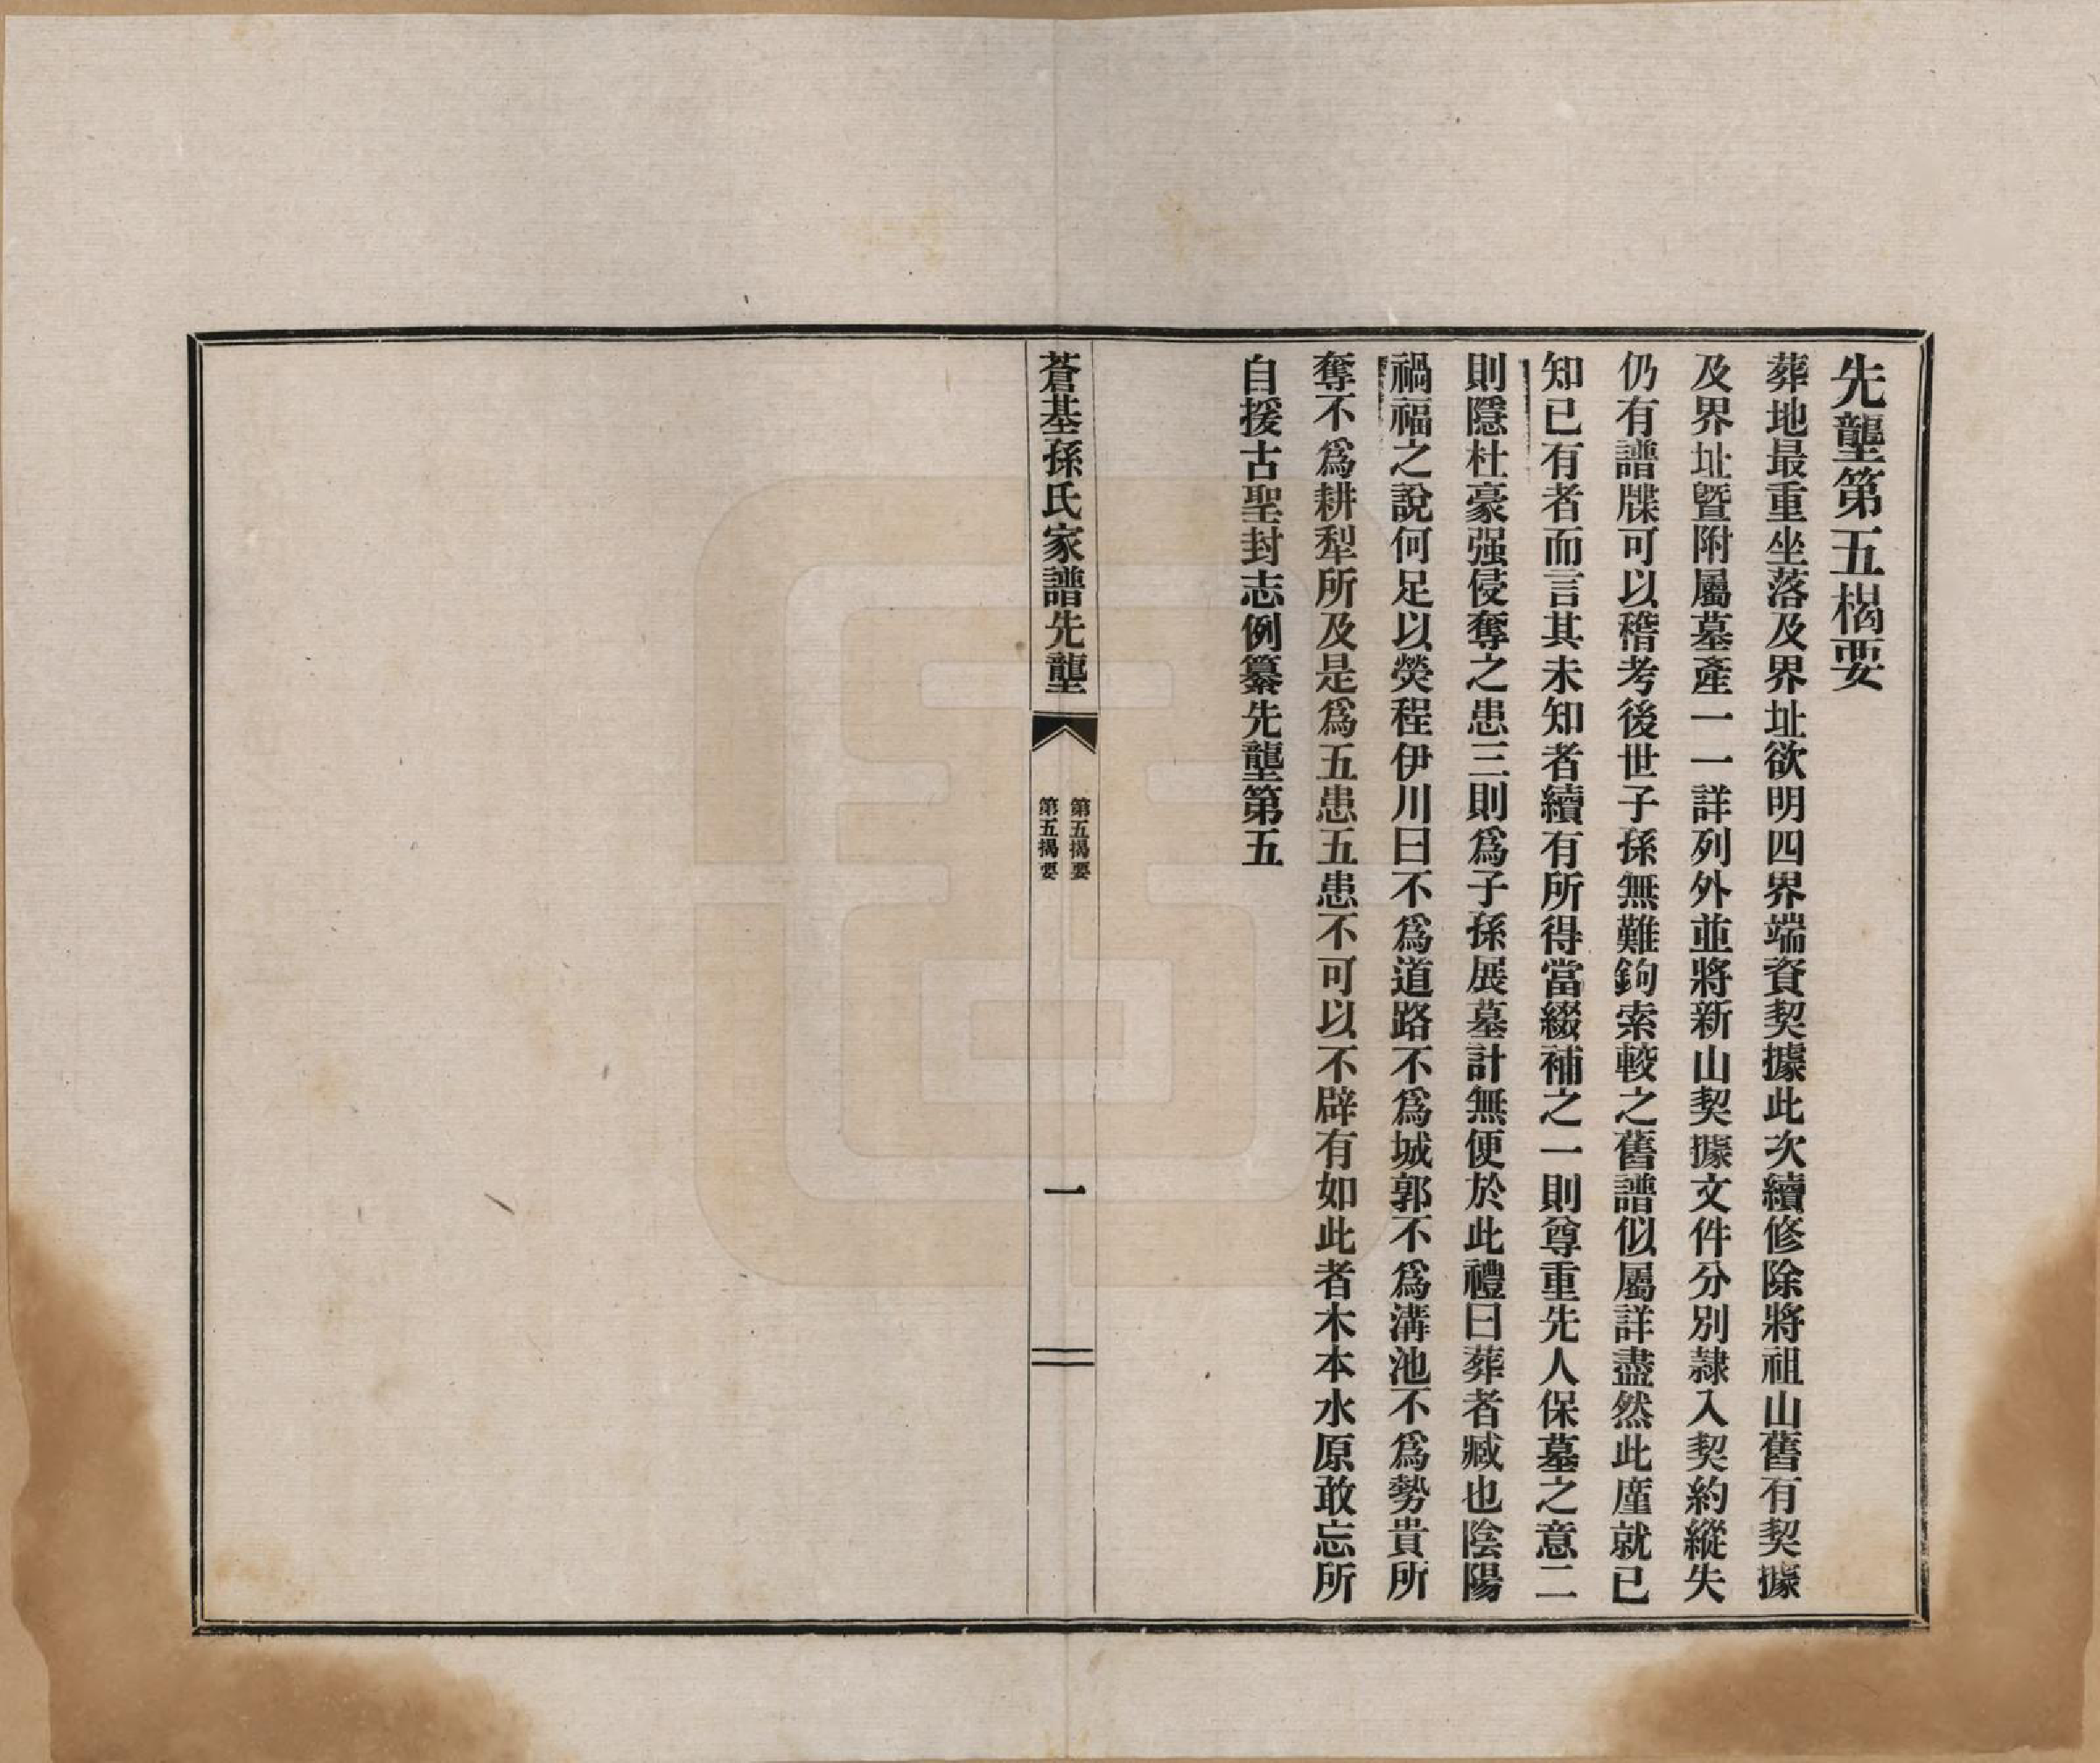 先壟第五楬要
葬地最重坐落及界址欲明四界端資契據此次續修除將祖山舊有契據
及界址暨附屬墓產一一詳列外並將新山契據文件分別隷入契約縱失
仍有譜牒可以稽考後世子孫無難鉤索較之舊譜似屬詳盡然此廑就已
知已有者而言其未知者續有所得當綴補之一則尊重先人保墓之意二
則隱杜豪强侵奪之患三則爲子孫展墓計無便於此禮曰葬者臧也陰陽
禍福之說何足以熒程伊川曰不爲道路不爲城郭不爲溝池不爲勢貴所
奪不爲耕犁所及是爲五患五患不可以不辟有如此者木本水原敢忘所
自援古聖封志例纂先壟第五
蒼基孫氏家譜先壟
第五揭要
第五揭要
一